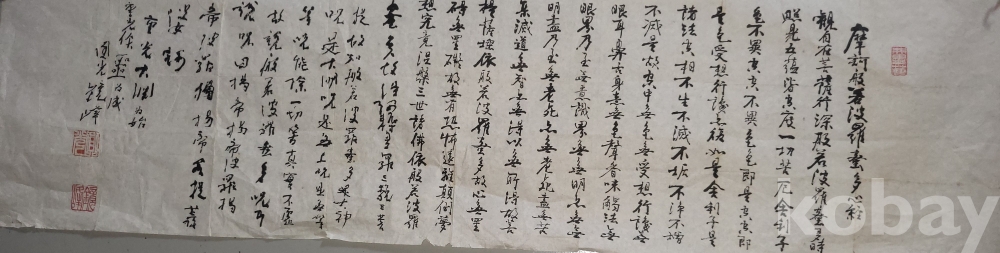 摩訶般若波羅蜜多心經
觀自在菩薩行深般若波羅蜜多時
照見五蘊皆空度一切苦厄舍利子
色不異空空不異色色即是空空即
是色受想行識亦復如是舍利子是
諸法空相不生不滅不垢不淨不增
不減是故空中無色無受想行識無
眼耳鼻舌身意無色聲香味觸法無
眼界乃至無意識界無無明亦無無
明盡乃至無老死亦無老死盡無苦
集滅道無智亦無得以無所得故菩
提薩埵依般若波羅蜜多故心無罣
礙無罣礙故無有恐怖遠離顛倒夢
想究竟涅槃三世諸佛依般若波羅
蜜多故得阿耨多羅三藐三菩
提故知般若波羅蜜多是大神
呪是大明呪是無上呪是無等
等呪能除一切苦真實不虛
故說般若波羅蜜多呪即
說呪曰揭帝揭帝波羅揭
帝波羅僧揭帝菩提薩
婆訶
kobay